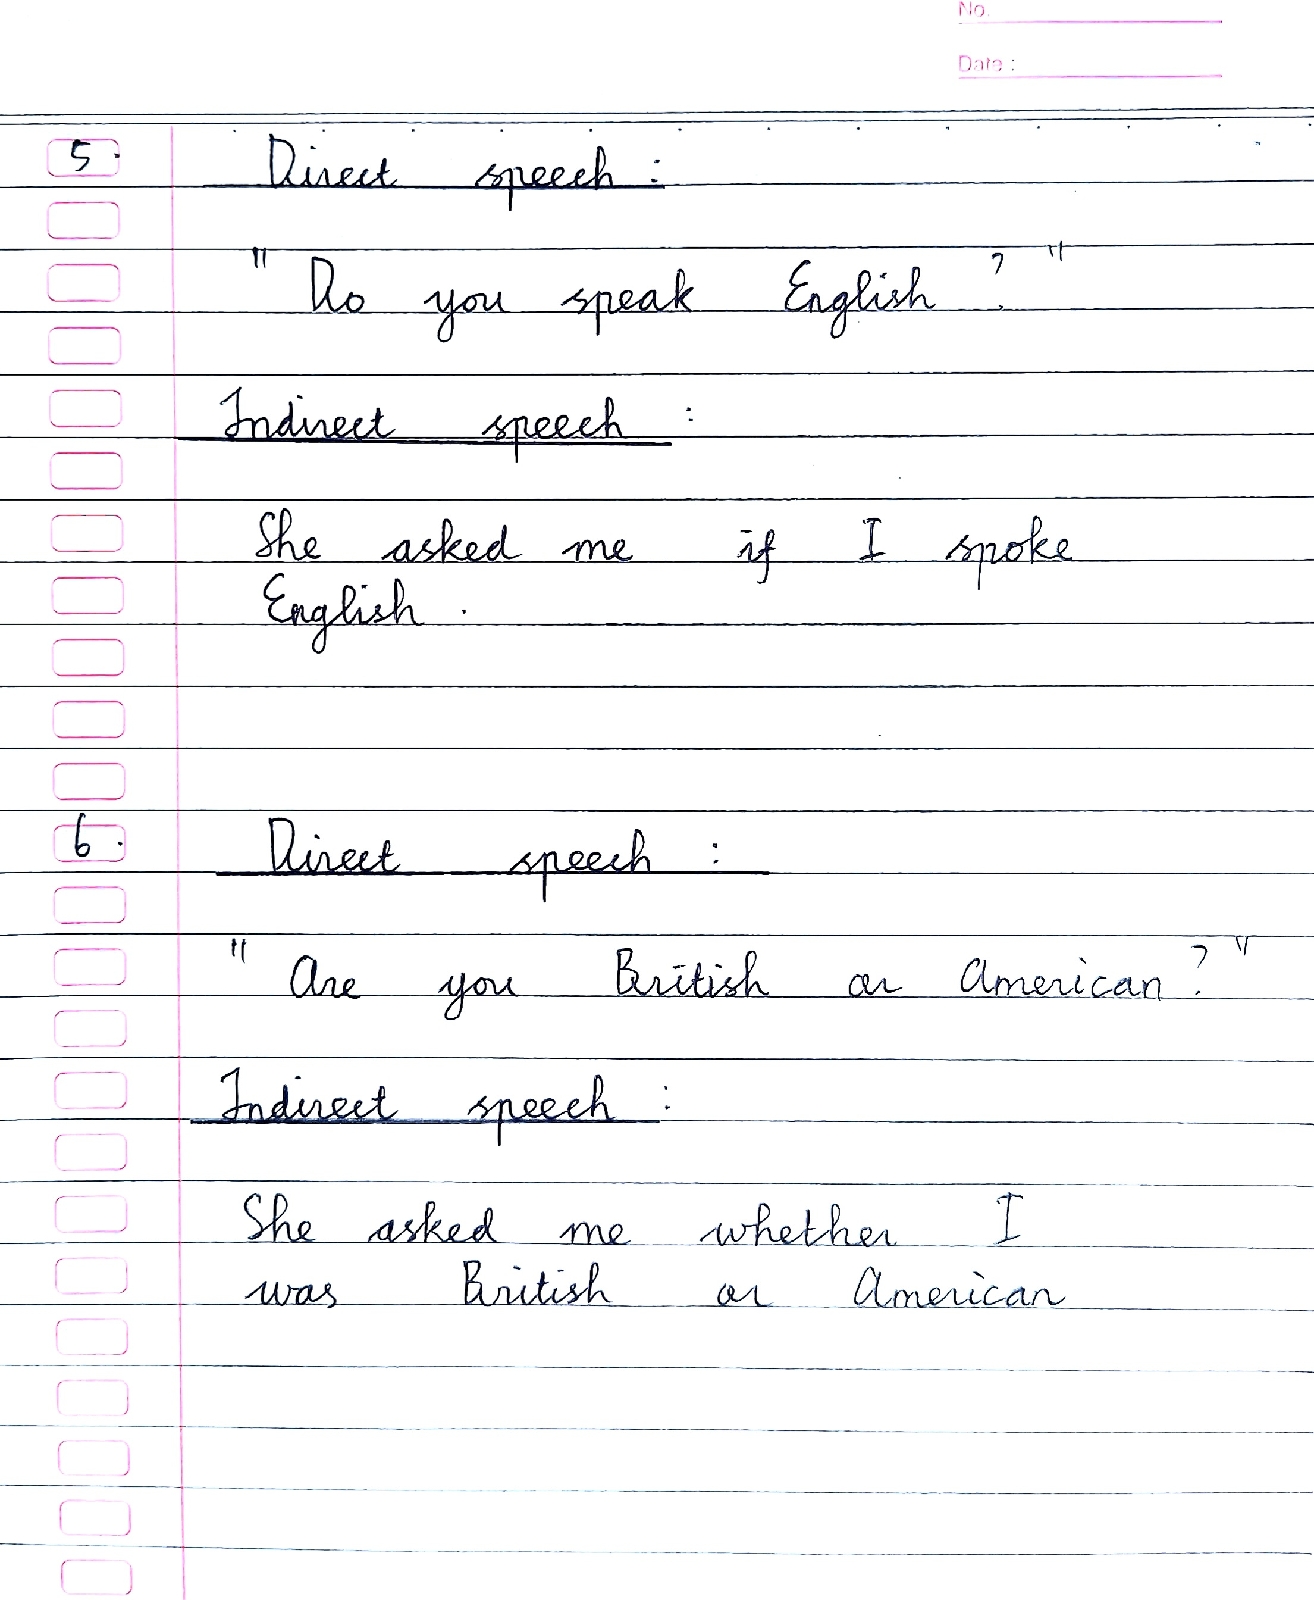 No.
Date :
5. Direct speech :
" Do you speak English ? "
Indirect speech :
She asked me if I spoke
English .
6. Direct speech :
" Are you British or American ? "
Indirect speech :
She asked me whether I
was British or American